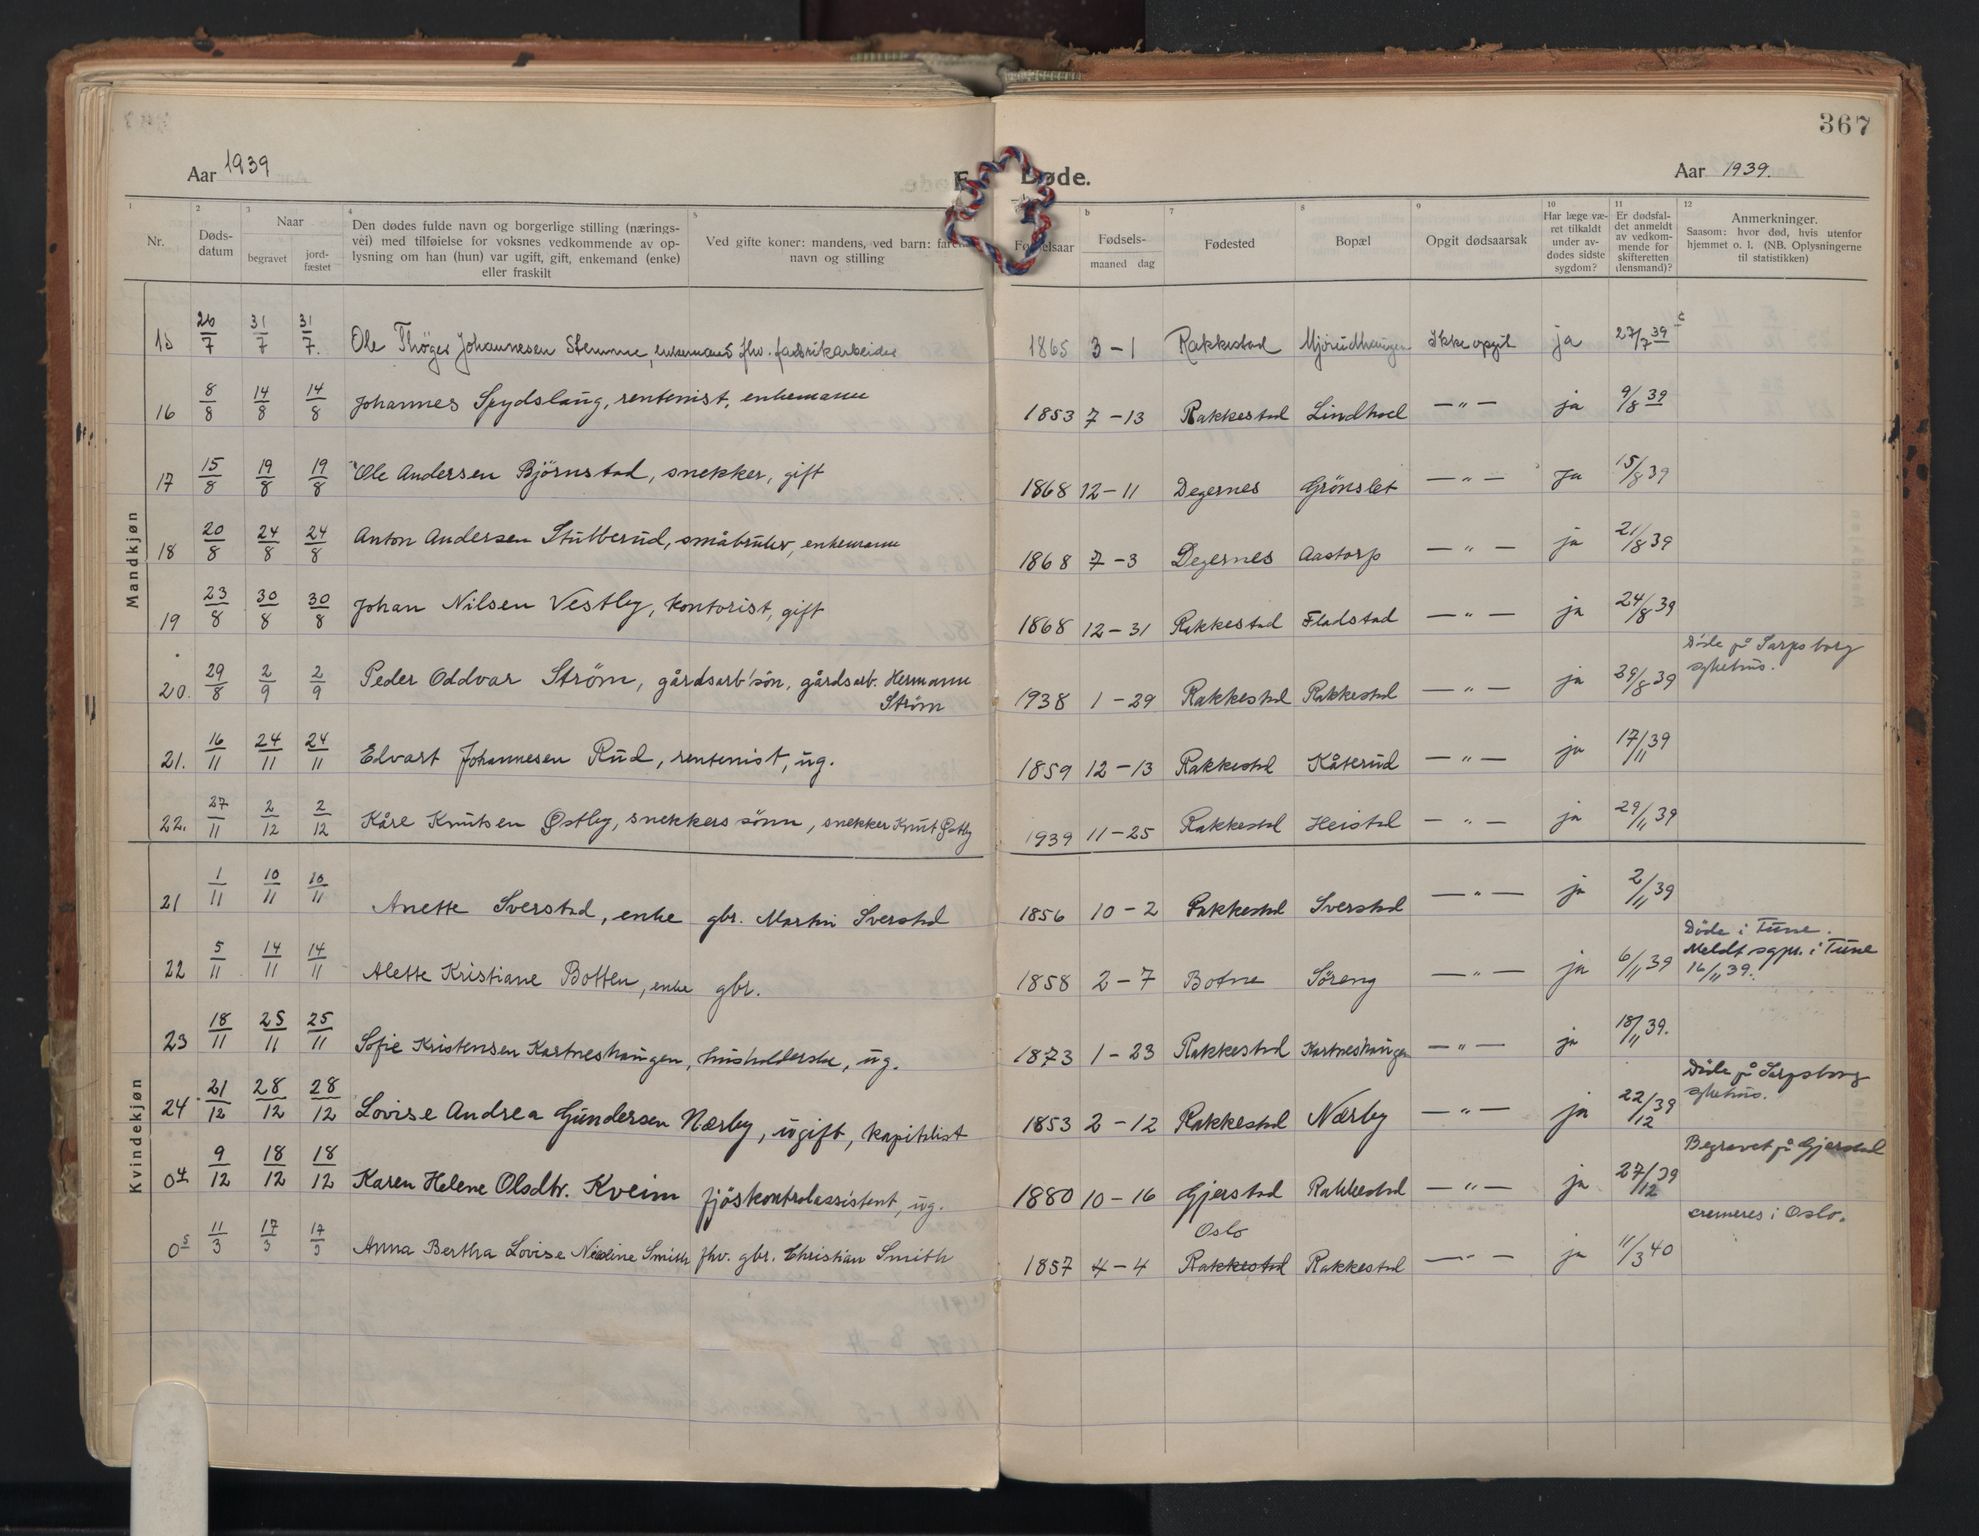 367
Aar 1939
Døde.
Aar 1939.
1 2 3 4 5 b 7 8 9 10 11 12
Nr.
Døds-
datum
Naar
begravet
jord-
fæstet
Den dødes fulde navn og borgerlige stilling (nærings-
vei) med tilføielse for voksnes vedkommende av op-
lysning om han (hun) var ugift, gift, enkemand (enke)
eller fraskilt
Ved gifte koner: mandens, ved barn:
navn og stilling
Fødselsaar
Fødsels-
maaned dag
Fødested
Bopæl
Opgit dødsaarsak
Har læge væ-
ret tilkaldt
under av-
dødes sidste
sygdom?
Er dødsfal-
det anmeldt
av vedkom-
mende for
skifteretten
(lensmand)?
Anmerkninger.
Saasom: hvor død, hvis utenfor
hjemmet o. l. (NB. Oplysningerne
til statistikken)
Mandkjøn
15 26/7 31/7 31/7. Ole Thöger Johannesen Stemme, enkemand fhv. fabrikarbeider 1865 3-1 Rakkestad Mjørudhaugen Ikke opgit ja 27/7 39
16 8/8 14/8 14/8 Johannes Spydslaug, rentenist, enkemann 1853 7-13 Rakkestad Lindhoel —"— ja 9/8 39
17 15/8 19/8 19/8 Ole Andersen Björnstad, snekker, gift 1868 12-11 Degernes Grönslet —"— Ja 15/8 39
18 20/8 24/8 24/8 Anton Andersen Stubberud, småbruker, enkemann 1868 7-3 Degernes Aastorp —"— ja 21/8 39
19 23/8 30/8 30/8 Johan Nilsen Vestby, kontorist, gift 1868 12-31 Rakkestad Fladstad —"— ja 24/8 39
20. 29/8 2/9 2/9 Peder Oddvar Ström, gårdsarb' sön, gårdsarb. Hermann
Ström 1938 1-29 Rakkestad Rakkestad —"— ja 29/8 39 Döde på Sarpsborg
sykehus.
21. 16/11 24/11 24/11 Edvart Johannesen Rud, rentenist, ug. 1859 12-13 Rakkestad Kåterud —"— ja 17/11 39
22. 27/11 2/12 2/12 Kåre Knutsen Østby, snekkers sönn, snekker Knut Østby 1939 11-25 Rakkestad Heistad —"— ja 29/11 39
Kvindekjøn
21 1/11 10/11 10/11 Anette Sverstad, enke gbr. Martin Sverstad 1856 10-2 Rakkestad Sverstad —"— ja 2/11 39
22 5/11 14/11 14/11 Alette Kristiane Botten, enke gbr. 1858 2-7 Botne Søreng —"— ja 6/11 39 Döde i Tune.
Meldt sgpr. i Tune
16/11 39.
23 18/11 25/11 25/11 Sofie Kristensen Kartneshaugen, husholderske, ug. 1873 1-23 Rakkestad Kartneshaugen —"— ja 18/11 39.
24 21/12 28/12 28/12 Lovise Andrea Gundersen Nærby, ugift, kapitalist 1853 2-12 Rakkestad Nærby —"— ja 22/12 39 Döde på Sarpsborg
sykehus.
04 9/12 18/12 18/12 Karen Helene Olsdtr. Kveim fjöskontrolassistent, ug. 1880 10-16 Gjerstad Rakkestad —"— ja 27/12 39 Begravet på Gjerstad
05 11/3 17/3 17/3 Anna Bertha Lovise Nicoline Smith fhv. gbr. Christian Smith 1857 4-4 Oslo Rakkestad Rakkestad —"— ja 11/3 40 cremeres i Oslo.